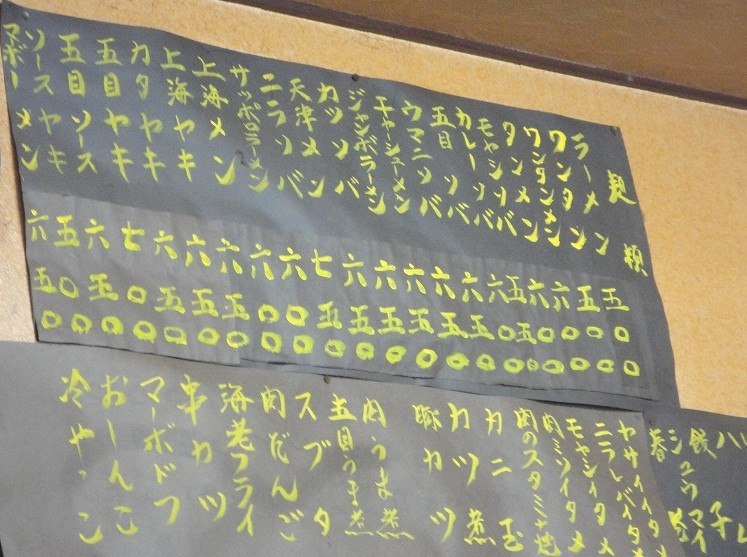 麺類
ラーメン 五〇〇
ワンタン 五〇〇
ワンタンメン 六〇〇
タンメン 六〇〇
モヤシソバ 五五〇
カレーソバ 六〇〇
五目ソバ 六五〇
ウマニソバ 六五〇
チャーシューメン 六五〇
ジャンボラーメン 六五〇
カツソバ 六五〇
天津メン 七五〇
ニラソバ 六〇〇
サッポロラーメン 六〇〇
上海メン 六五〇
上海ヤキ 六五〇
カタヤキ 六五〇
五目ヤキ 七〇〇
五目ソースヤキ 六五〇
ソースヤキ 五〇〇
マボーメン 六五〇
餃子
シュウマイ
春巻
ヤサイイタメ
ニラレバイタメ
モヤシイタメ
肉ミソイタメ
肉のスタミナ焼
カニ玉
カツ煮
豚カツ
肉うま煮
五目うま煮
スブタ
肉だんご
海老フライ
串カツ
マーボドフ
おしんこ
冷やっこ